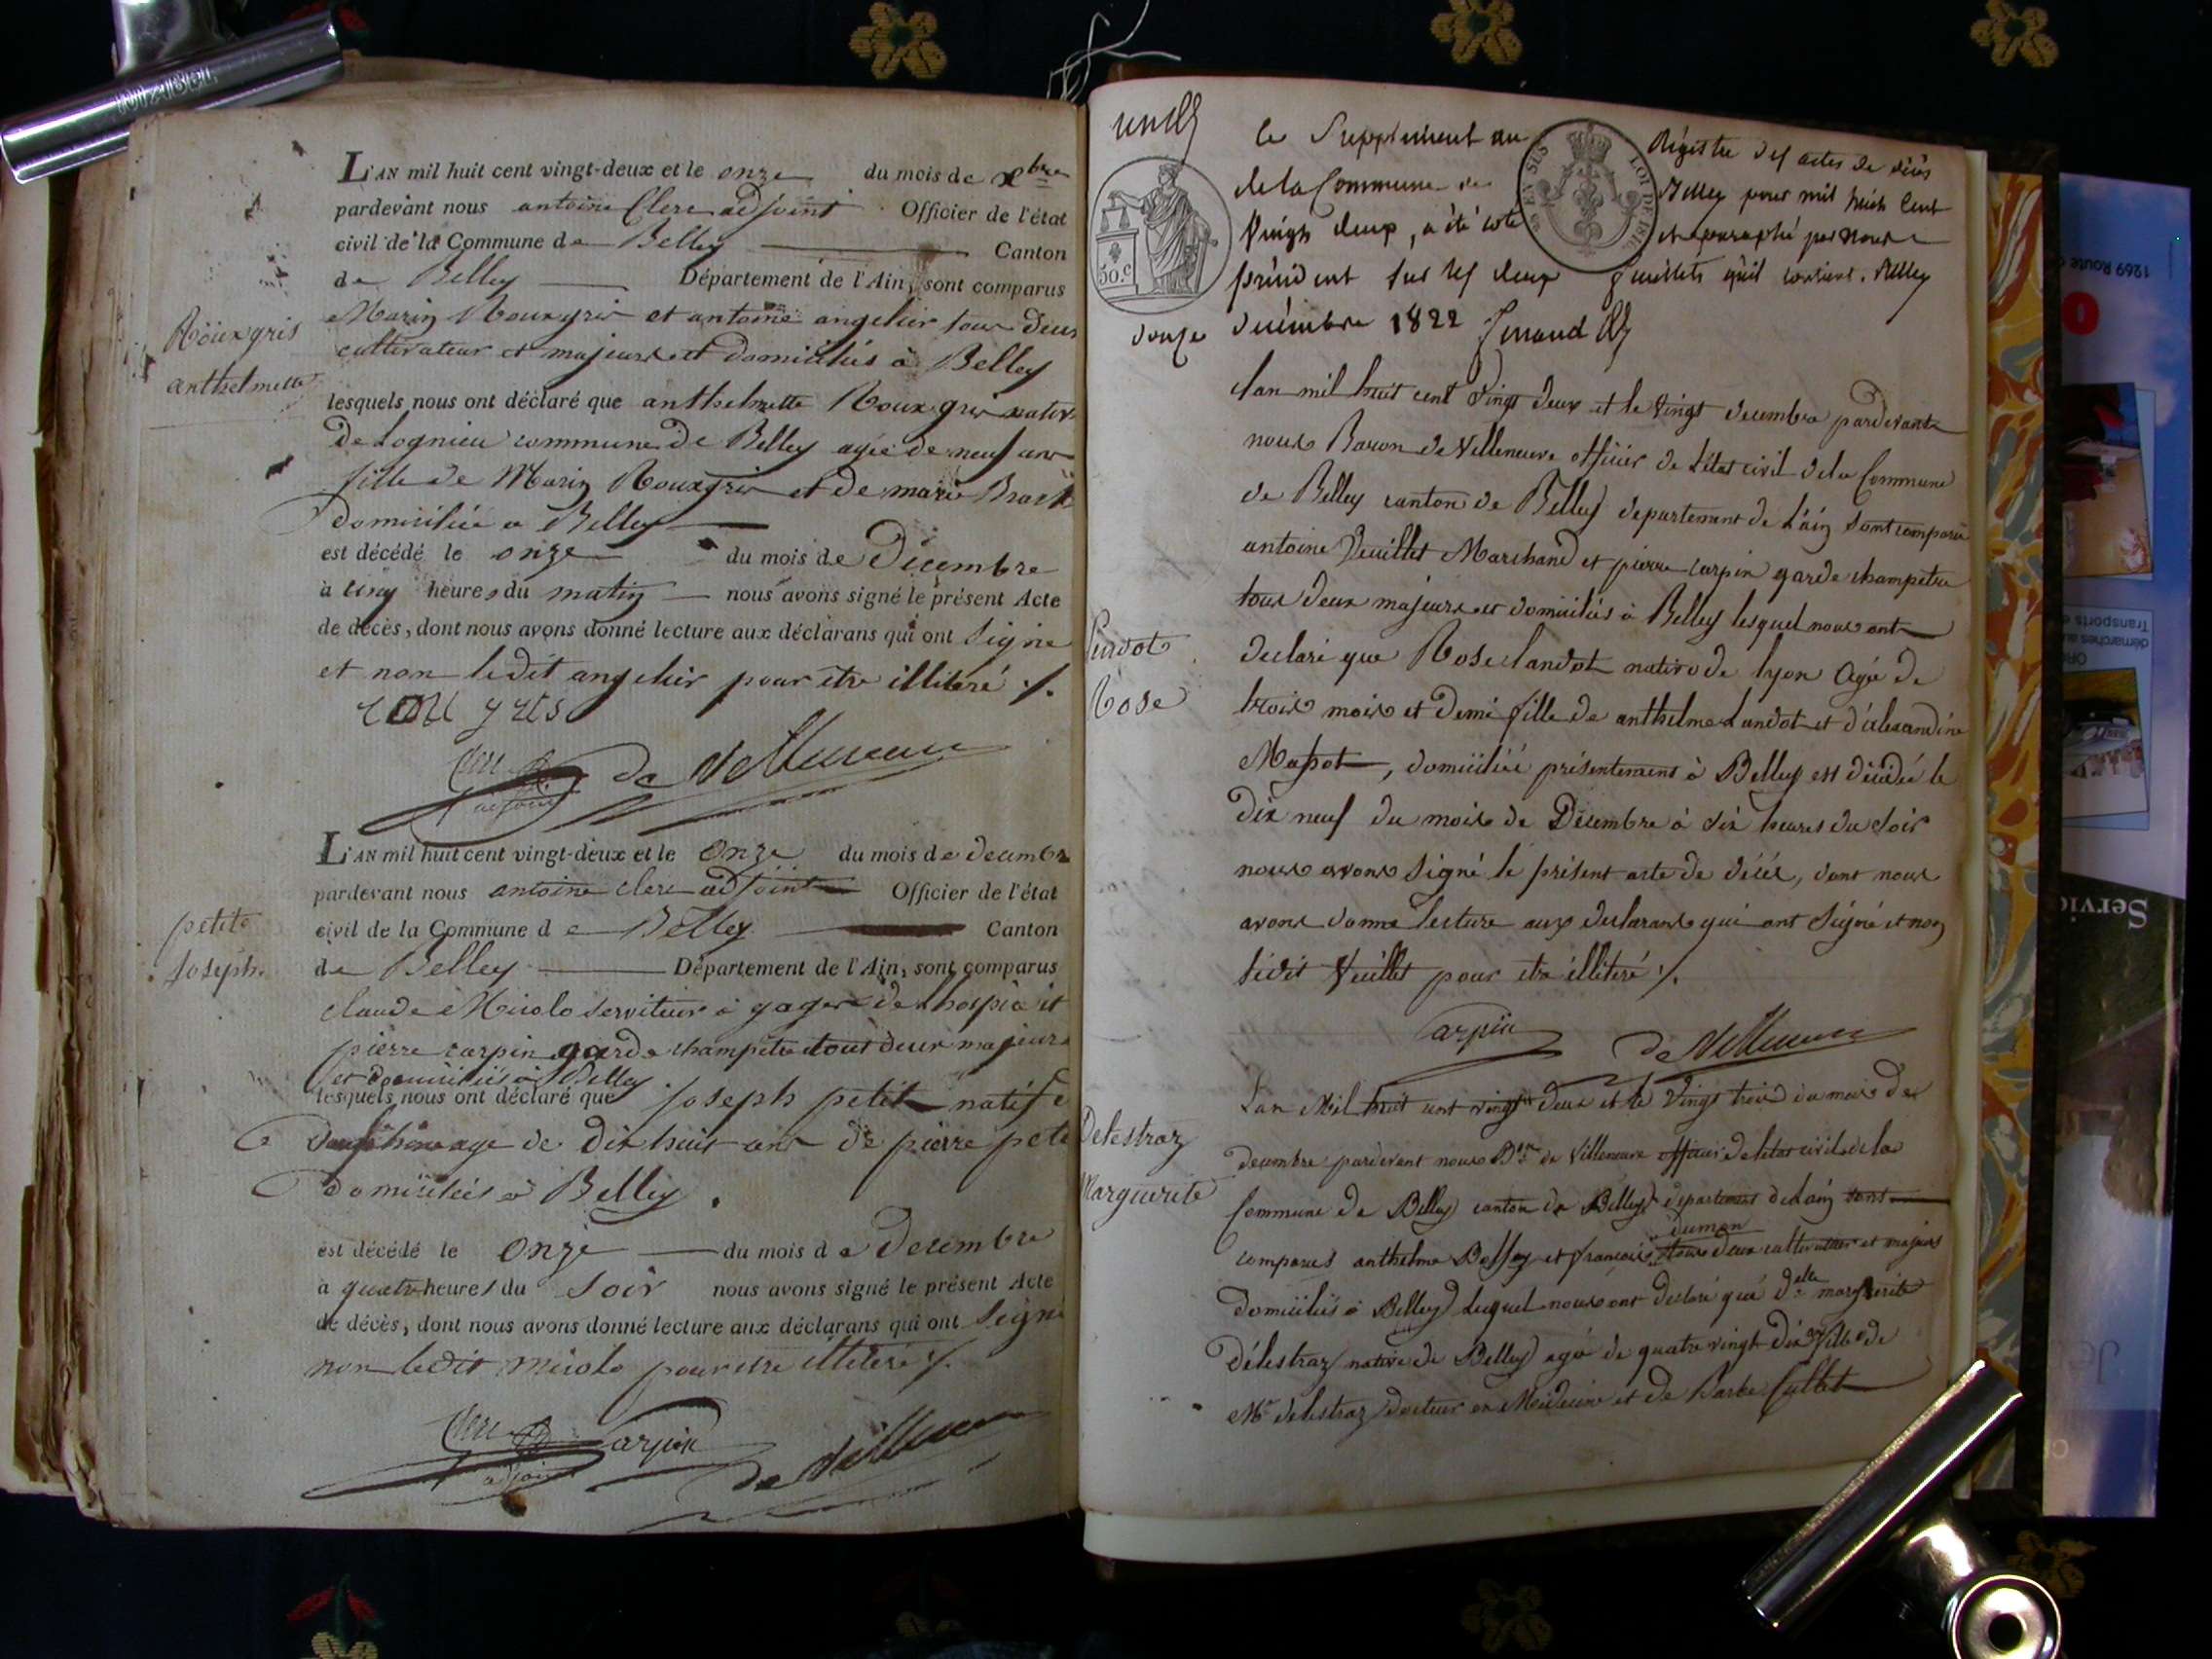 Rouxgris
anthelmette
L'AN mil huit cent vingt-deux et le onze du mois de xbre
pardevant nous antoine Clerc adjoint Officier de l'état
civil de la Commune de Belley Canton
de Belley Département de l'Ain, sont comparus
Marin Rouxgris et antoine angelier tous deux
cultivateur et majeurs et domiciliés à Belley
lesquels nous ont déclaré que anthelmette Rouxgris native
de Lognieu commune de Belley agée de neuf ans
fille de Marin Rouxgris et de marie
domiciliée a Belley
est décédé le onze du mois de Décembre
à cinq heures du matin nous avons signé le présent Acte
de décès, dont nous avons donné lecture aux déclarans qui ont signé
et non ledit angelier pour etre illiteré ./.
rou gris
Clerc adjoint de Villeneuve
petit
Joseph
L'AN mil huit cent vingt-deux et le onze du mois de decembre
pardevant nous antoine clerc adjoint Officier de l'état
civil de la Commune de Belley Canton
de Belley Département de l'Ain, sont comparus
claude Micolo serviteur à gages de lhospice et
pierre carpin garde champetre tout deux majeurs
et domiciliés à Belley
lesquels nous ont déclaré que Joseph petit natif de
age de dix huit ans de pierre petit
domiciliés à Belley.
est décédé le onze du mois de Decembre
à quatre heures du soir nous avons signé le présent Acte
de décès, dont nous avons donné lecture aux déclarans qui ont signé
non ledit micolo pour etre illiteré ./.
Clerc adjoint Carpin de Villeneuve
50.c
EN SUS
LOI DE 1816
Le Supplément au Régistre des actes de décès
de la Commune de Belley pour mil huit Cent
Vingt deux, a été coté et paraphé par nous
président sur les deux feuillets qu'il contient. Belley
douze décembre 1822
Landot
Rose
Lan mil huit cent vingt deux et le vingt decembre pardevant
nous Baron de Villeneuve officier de l'état civil de la Commune
de Belley canton de Belley departement de l'ain sont comparu
antoine Veuillet Marchand et pierre carpin garde champetre
tous deux majeurs et domiciliés à Belley lesquel nous ont
declaré que Rose Landot native de lyon agée de
trois mois et demi fille de anthelme Landot et d'alexandine
domiciliée présentement à Belley est décédée le
dix neuf du mois de Decembre à dix heures du soir
nous avons signé le présent acte de décès, dont nous
avons donné lecture aux declarans qui ont signé et non
ledit Veuillet pour etre illiteré ./.
Carpin de Villeneuve
Delestraz
Marguerite
Lan Mil huit cent vingt deux et le vingt trois du mois de
decembre pardevant nous Bon de Villeneuve officier de létat civil de la
Commune de Belley canton de Belley departement de Lain sont
dumon
comparus anthelme Bessey et françois tous deux cultivateur et majeurs
domiciliés à Belley Lequel nous ont declaré que delle marguerite
Délestraz native de Belley agé de quatre vingt dix fille de
Mr delestraz docteur en Médecine et de Barbe Cullet
1269 Route
démarches au
Transports e
Servic